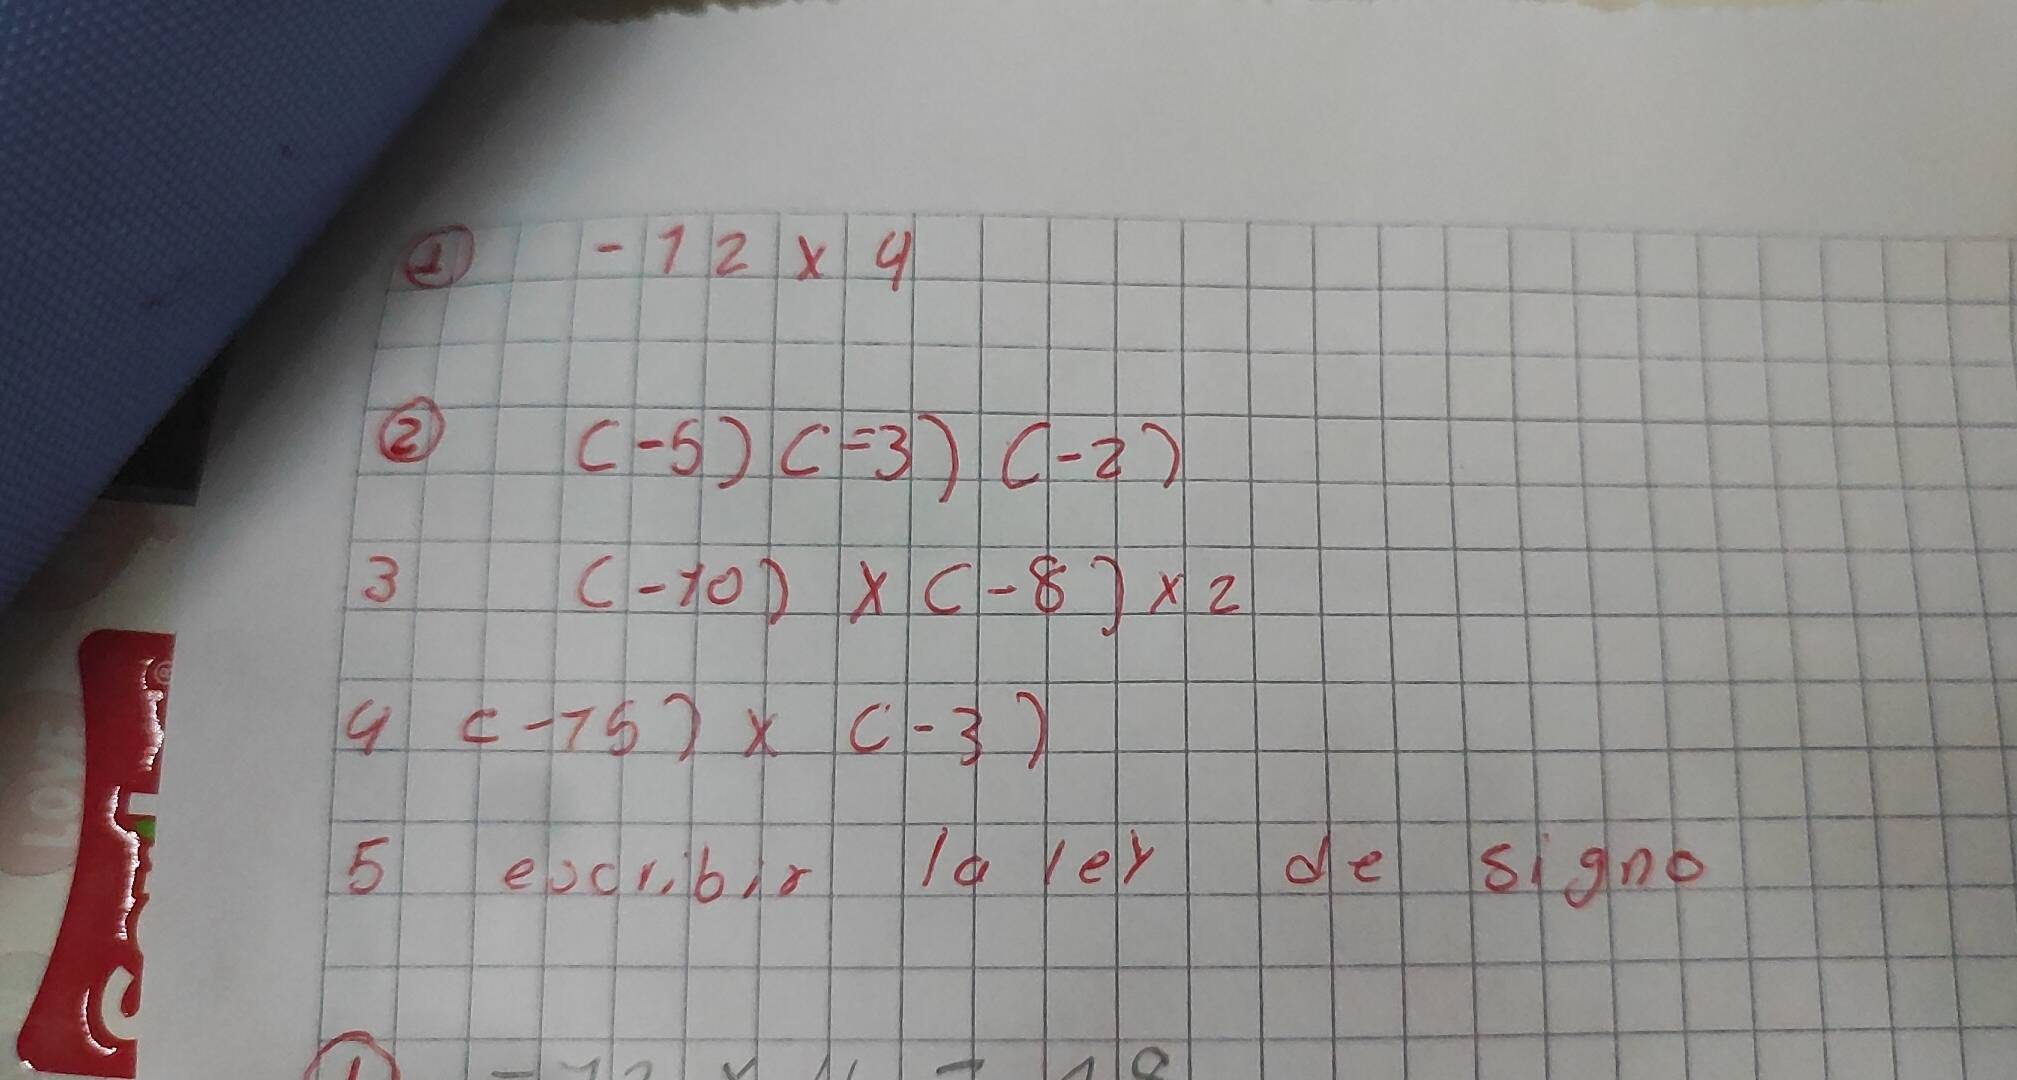 1 -12 x 4
2 (-5) (-3) (-2)
3 (-10) x (-8) x 2
4 (-15) x (-3)
5 escribir la ley de signo
LOVE